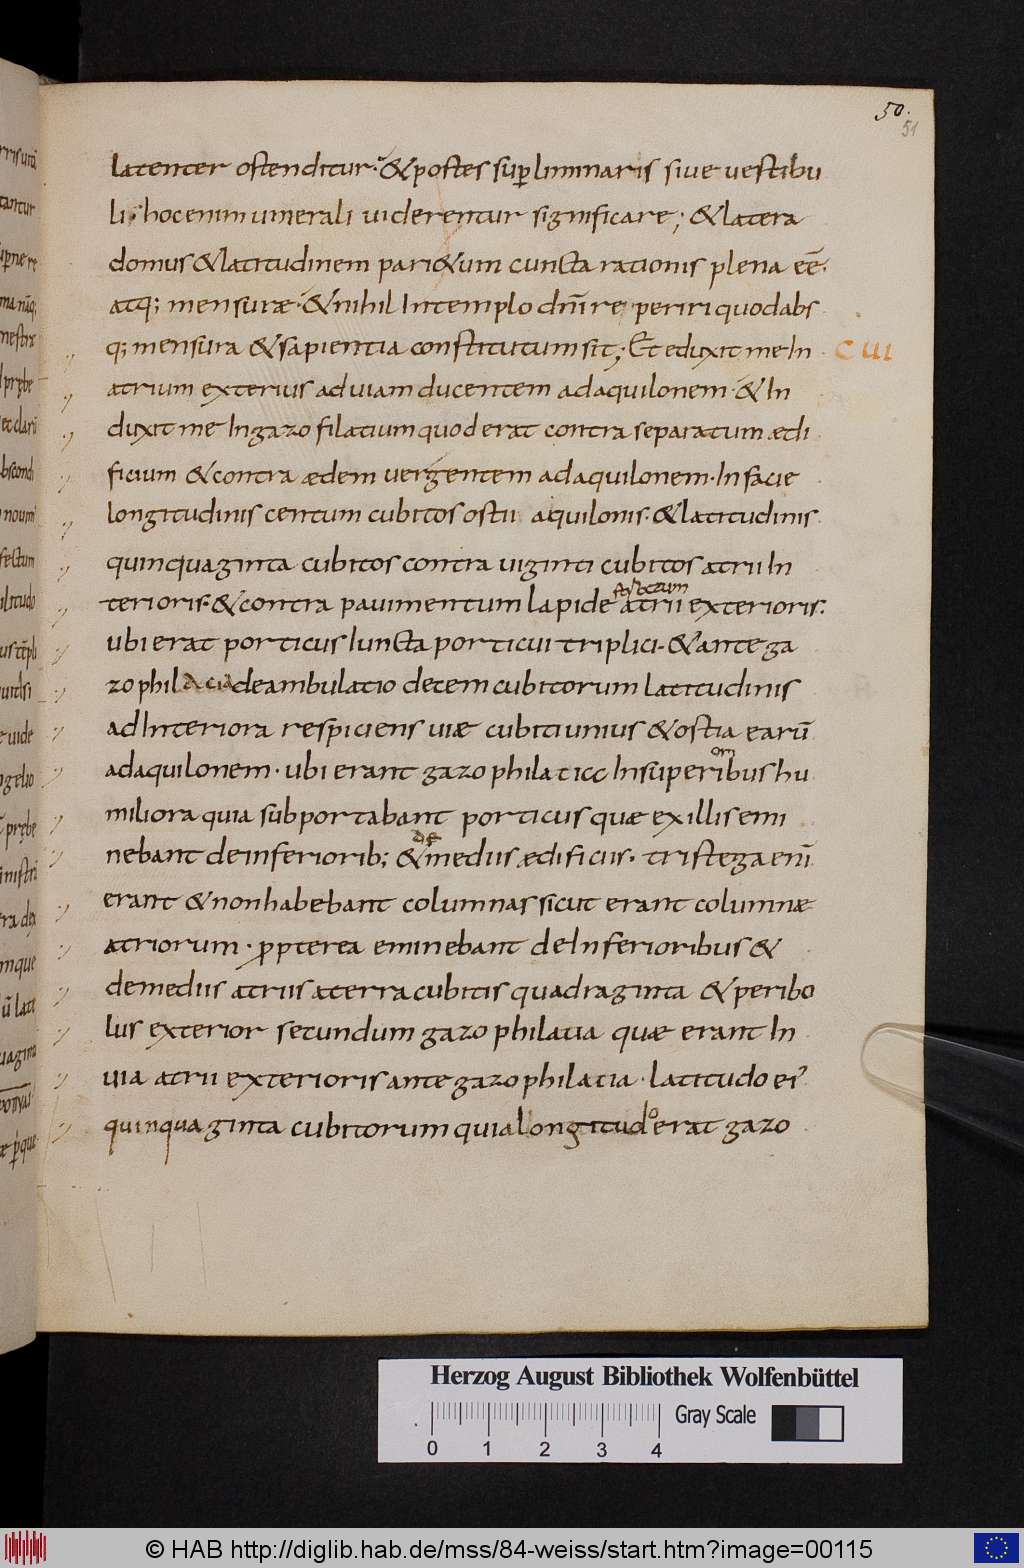 50.
51
latenter ostenditur. & postes sup liminaris sive vestibu
li. hoc enim umerali viderentur significare; & latera
domus & latitudinem pari&um cuncta rationis plena eē.
atq; mensurae. & nihil In templo dn̄i reperiri quod abs
q; mensura & sapientia constitutum sit; Et eduxit me In
C VI
atrium exterius ad viam ducentem ad aquilonem. & In
duxit me In gazofilatium quod erat contra separatum aedi
ficium & contra aedem vergentem ad aquilonem. In facie
longitudinis centum cubitos ostii aquilonis. & latitudinis
quinquaginta cubitos contra viginti cubitos atrii In
terioris. & contra pavimentum lapide atrii exterioris.
ubi erat porticus Iuncta porticui triplici. & ante ga
zophilacia deambulatio decem cubitorum latitudinis
ad Interiora respiciens viae cubiti unius & ostia earū
ad aquilonem. ubi erant gazophilatia In superibus hu
om
miliora quia subportabant porticus quae ex illis emi
nebant de inferiorib; & mediis aedificiis. tristega enī
de
erant & non habebant columnas sicut erant columnae
atriorum. ppterea eminebant de Inferioribus &
de mediis atriis a terra cubitis quadraginta & peribo
lus exterior secundum gazophilatia quae erant In
via atrii exterioris ante gazophilatia. latitudo ei'
quinquaginta cubitorum quia longitudo erat gazo
Herzog August Bibliothek Wolfenbüttel
Gray Scale
0 1 2 3 4
© HAB http://diglib.hab.de/mss/84-weiss/start.htm?image=00115